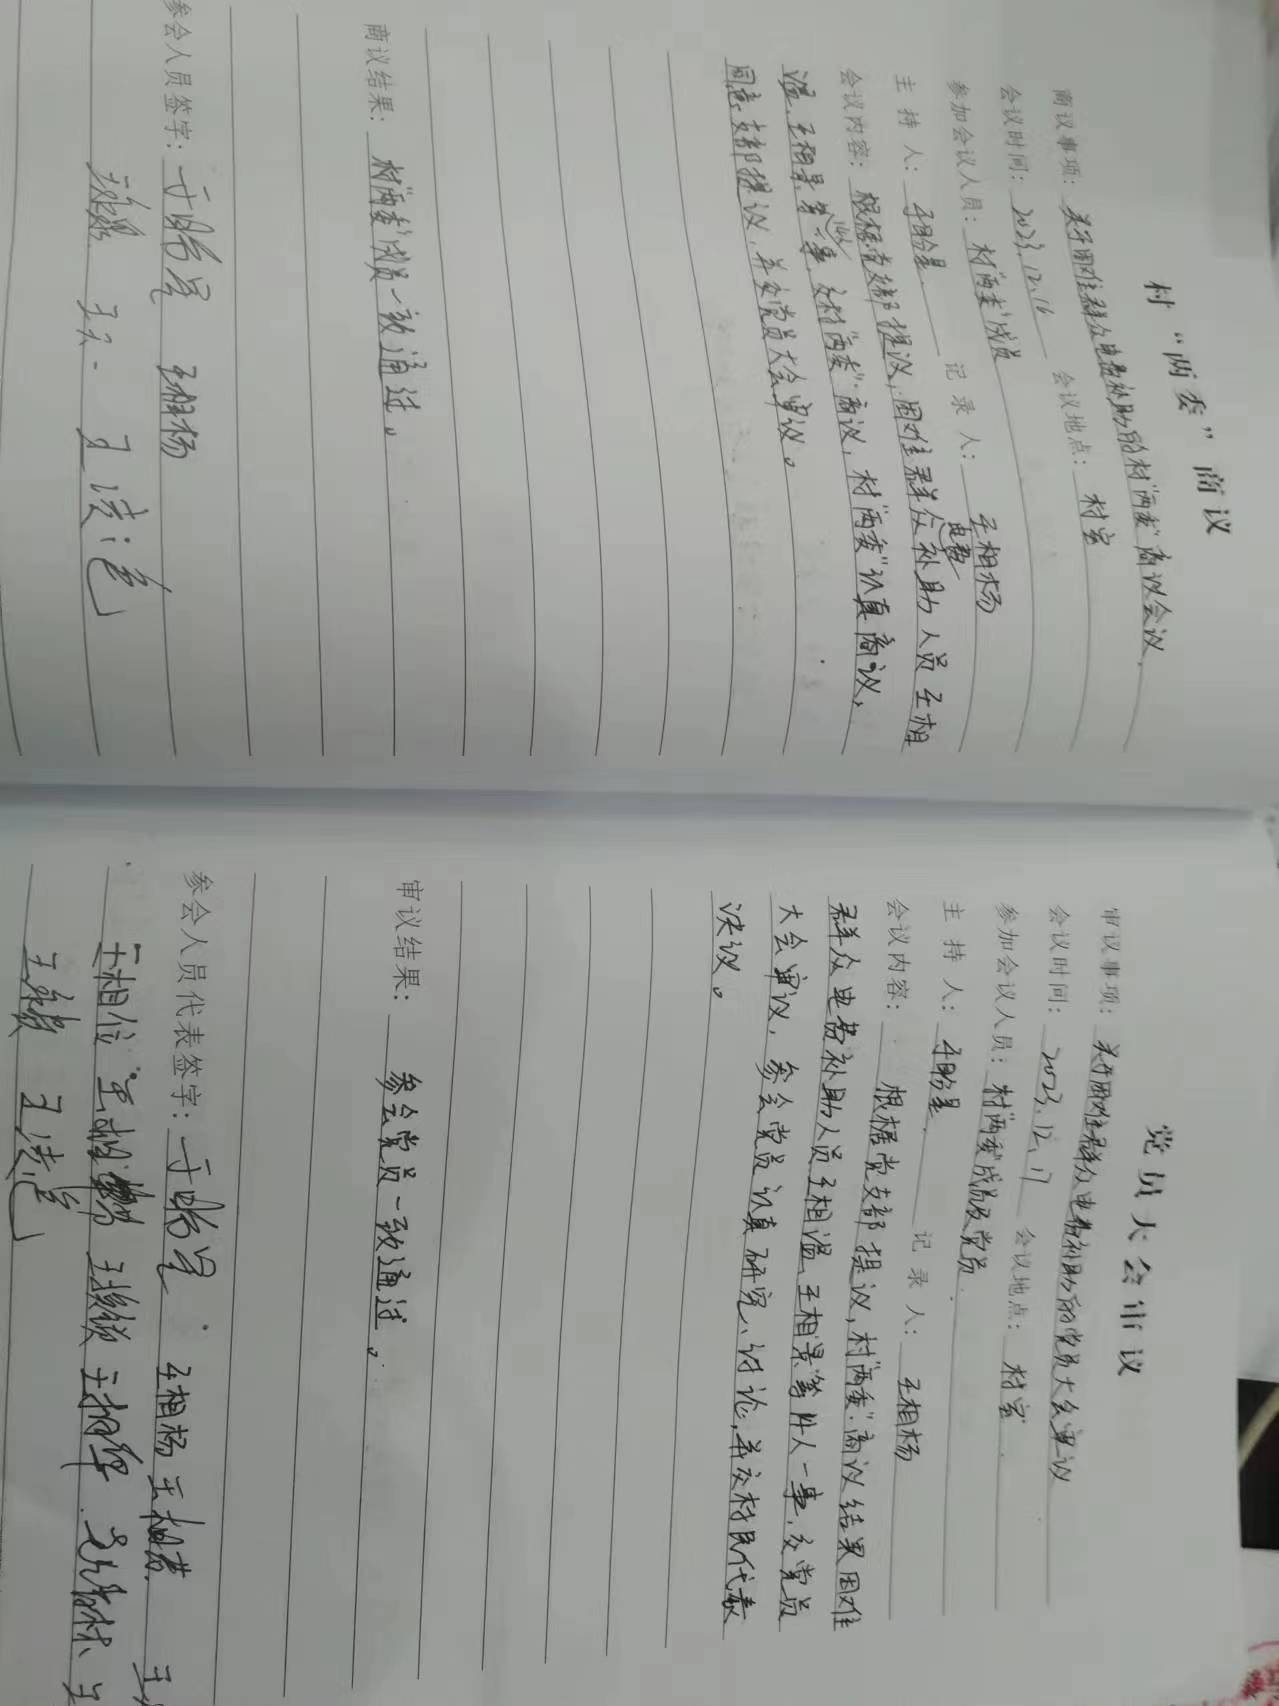 村“两委”商议
商议事项：关于困难群众电费补助的村“两委”商议会议
会议时间：2023.12.16 会议地点：村室
参加会议人员：村“两委”成员
主持人：王晗星 记录人：王相杨
会议内容：根据党支部提议，困难群众电费补助人员王相
温、王相景等 一事，交村“两委”商议，村“两委”认真商议，
同意支部提议，并交党员大会审议。
商议结果：村“两委”成员一致通过。
参会人员签字：王晗星 王相杨
王凌
党员大会审议
审议事项：关于困难群众电费补助的党员大会审议
会议时间：2023.12.17 会议地点：村室
参加会议人员：村“两委”成员及党员
主持人：王晗星 记录人：王相杨
会议内容：根据党支部提议，村“两委”商议结果困难
群众电费补助人员王相温、王相景等 人一事，交党员
大会审议，参会党员认真研究、讨论，并交村民代表
决议。
审议结果：参会党员一致通过。
参会人员代表签字：王晗星 王相杨
王相位
王凌